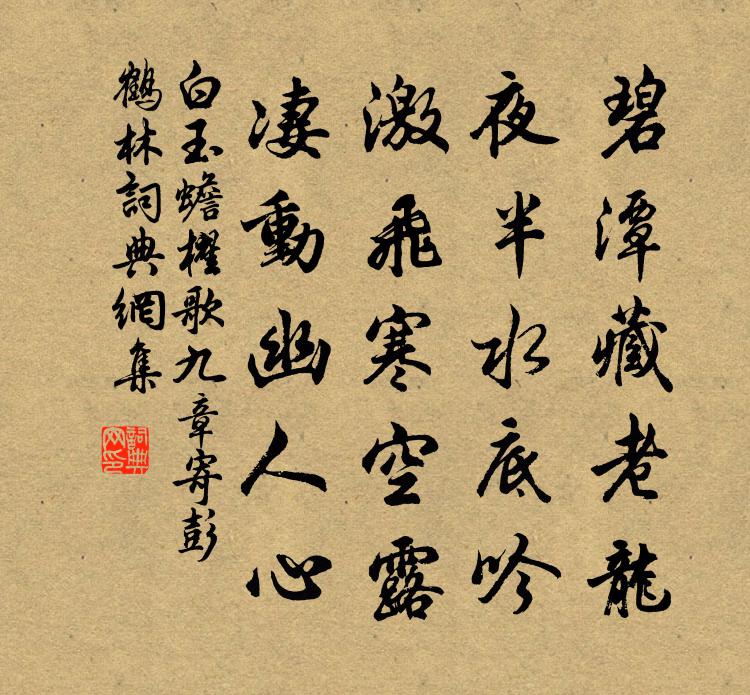 碧潭藏老龍
夜半水底吟
激飛寒空露
凄動幽人心
白玉蟾櫂歌九章寄彭
鶴林詞典網集
詞典
网印